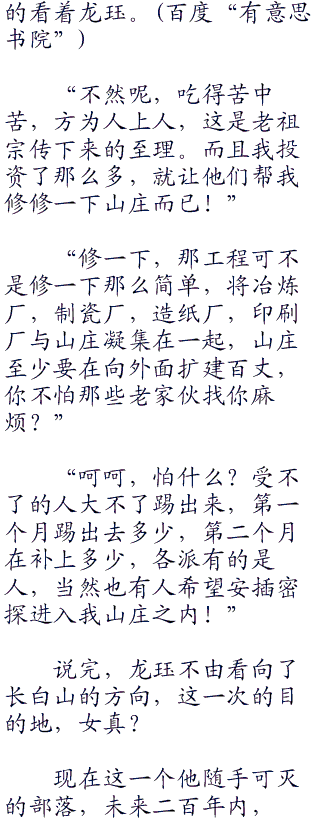 的看着龙珏。(百度“有意思
书院”)
“不然呢，吃得苦中
苦，方为人上人，这是老祖
宗传下来的至理。而且我投
资了那么多，就让他们帮我
修修一下山庄而已！”
“修一下，那工程可不
是修一下那么简单，将冶炼
厂，制瓷厂，造纸厂，印刷
厂与山庄凝集在一起，山庄
至少要在向外面扩建百丈，
你不怕那些老家伙找你麻
烦？”
“呵呵，怕什么？受不
了的人大不了踢出来，第一
个月踢出去多少，第二个月
在补上多少，各派有的是
人，当然也有人希望安插密
探进入我山庄之内！”
说完，龙珏不由看向了
长白山的方向，这一次的目
的地，女真？
现在这一个他随手可灭
的部落，未来二百年内，